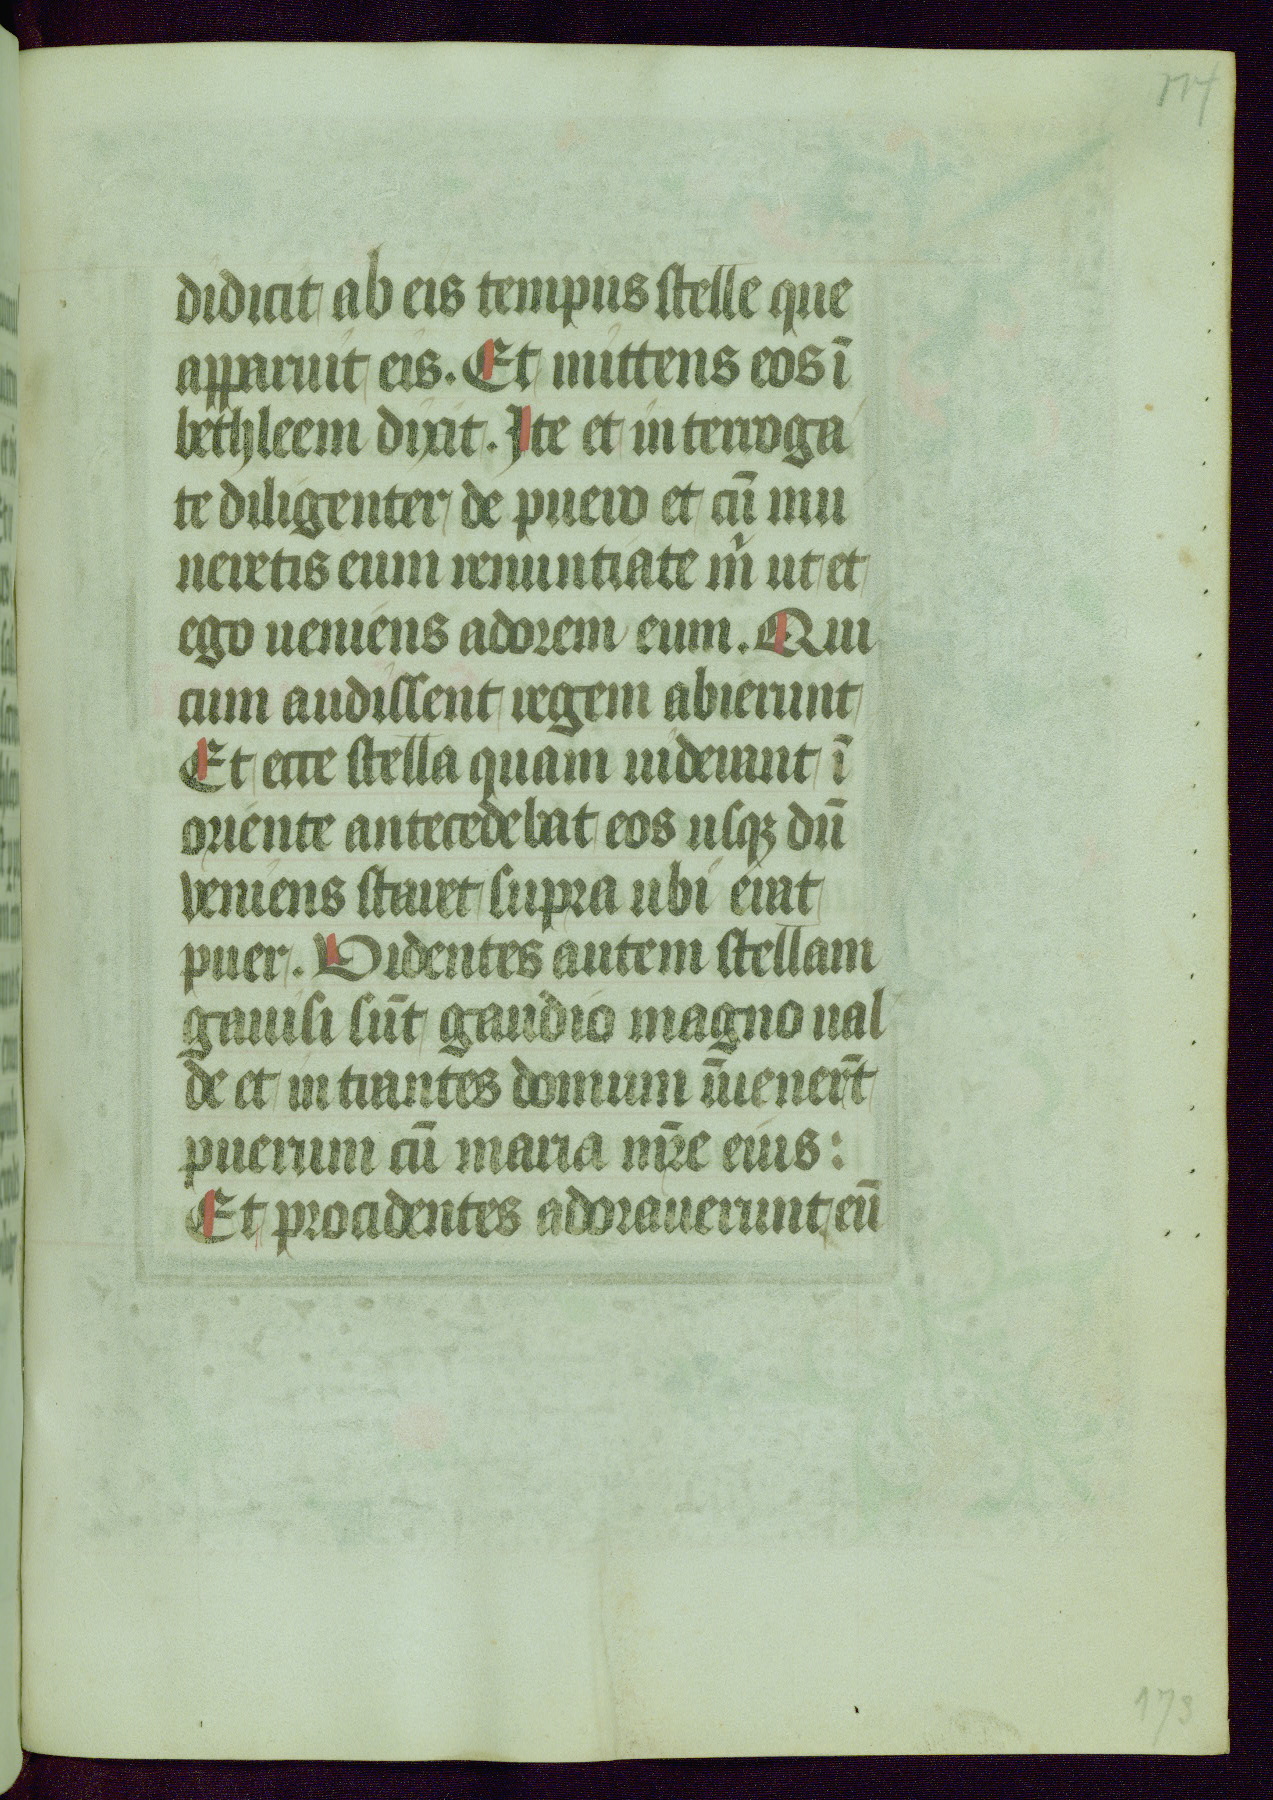 didicit ab eis tempus stelle que
apparuit eis. Et mittens eos ī
bethleem dixit. Ite et interroga
te diligenter de puero et cū inu
neretis eum renuntiate m̄ ut et
ego ueniens adorem eum. Qui
cum audissent regem abierunt
Et ecce stella quam uiderant ī
oriente antecedebat eos usqꝫ dū
veniens staret supra ubi erat
puer. Videntes autem stellam
gauisi sūt gaudio magno ual
de et intrantes domum īuener̄t
puerum cū maria mr̄e eius:
Et procidentes adorauerunt eū
173